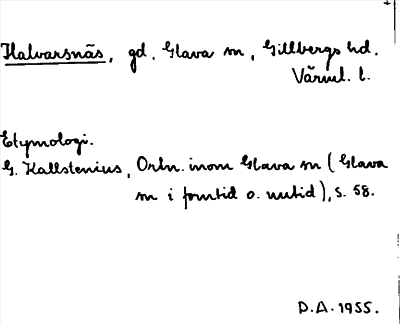 Halvarsnäs, gd. Glava sn, Gillbergs hd.
Värml. l.
Etymologi.
G. Kallstenius, Ortn. inom Glava sn (Glava
sn i forntid o. nutid), s. 58.
D.A. 1955.